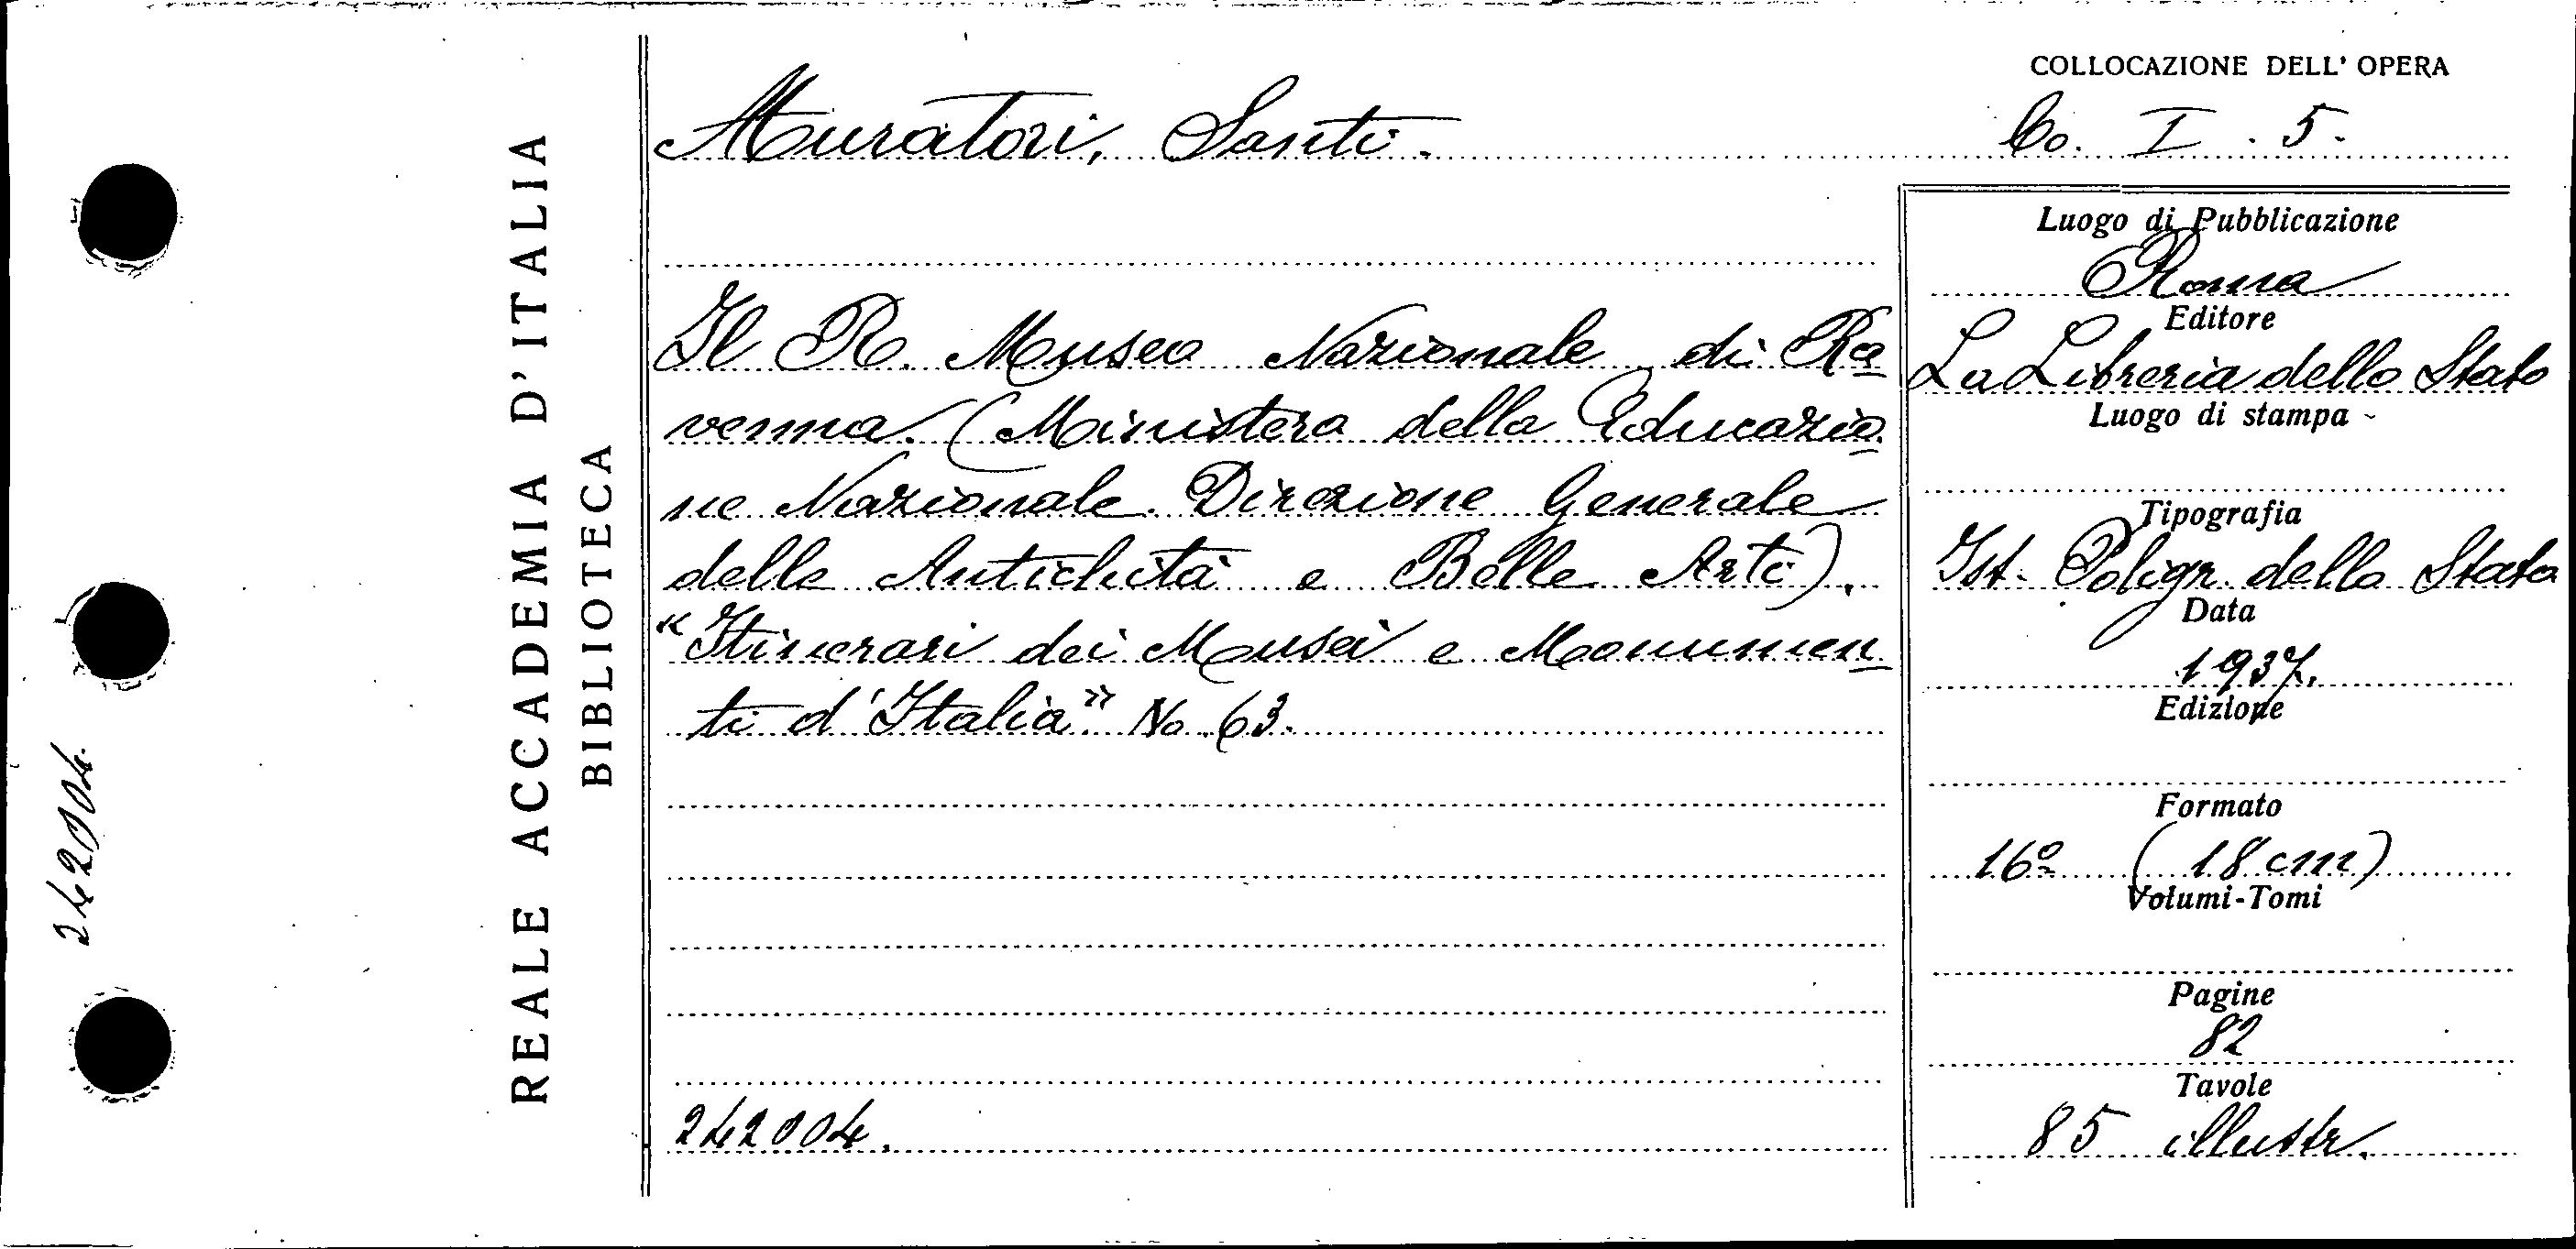 COLLOCAZIONE DELL' OPERA
Muratori, Santi.
Co. I. 5.
REALE ACCADEMIA D'ITALIA
BIBLIOTECA
242004.
Il R. Museo Nazionale di Ra
venna. (Ministero della Educazio
ne Nazionale. Direzione Generale
delle Antichità e Belle Arti).
"Itinerari dei Musei e Monumen
ti d'Italia" No. 63.
242004.
Luogo di Pubblicazione
Roma
Editore
La Libreria dello Stato
Luogo di stampa
Tipografia
Ist. Poligr. dello Stato
Data
1937.
Edizione
Formato
16º (18 cm)
Volumi-Tomi
Pagine
82
Tavole
85 illustr.